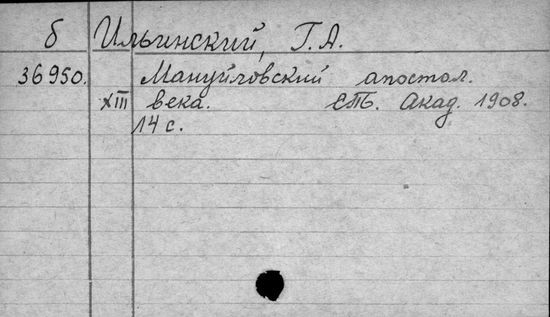 б Ильинский, Г.А.
36950. Мануйловский апостол.
XIII века. СПб. Акад. 1908.
14 с.